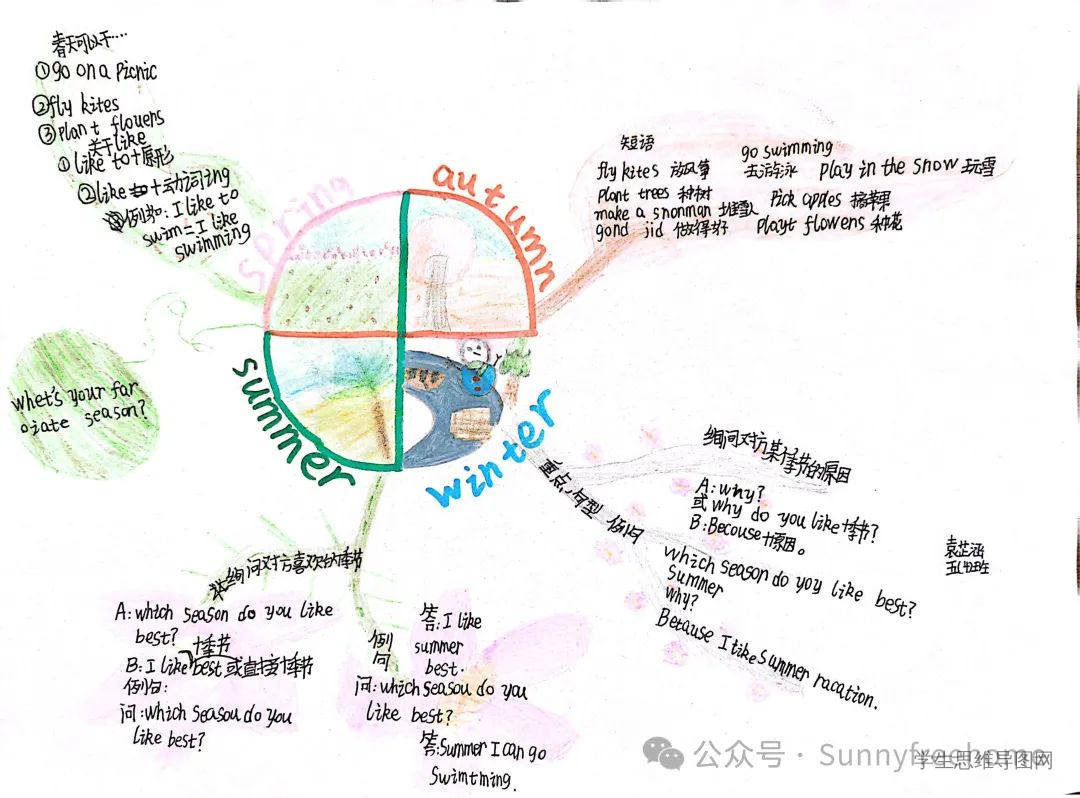 春天可以干…
①go on a picnic
②fly kites
③plant flowers
关于like
①like to+原形
②like+动词ing
③例如:I like to
swim=I like
swimming
spring
autumn
summer
winter
短语
fly kites 放风筝
go swimming
去游泳
play in the snow 玩雪
plant trees 种树
pick apples 摘苹果
make a snonman 堆雪人
gond jid 做得好
playt flowers 种花
whet's your far
ojate season?
重点句型 例问
询问对方某个季节的原因
A:why?
或why do you like+季节?
B:Becouse+原因。
which season do you like best?
summer
why?
Betause I like summer racation.
袁芷涵
询问对方喜欢的季节
A:which season do you like
best?
+季节
B:I like best 或直接+季节
例句:
问:which seasou do you
like best?
例
问
答:I like
summer
best.
问:which seasou do you
like best?
答:Summer I can go
Swimtming.
公众号·Sunnyfreehome
学生思维导图网